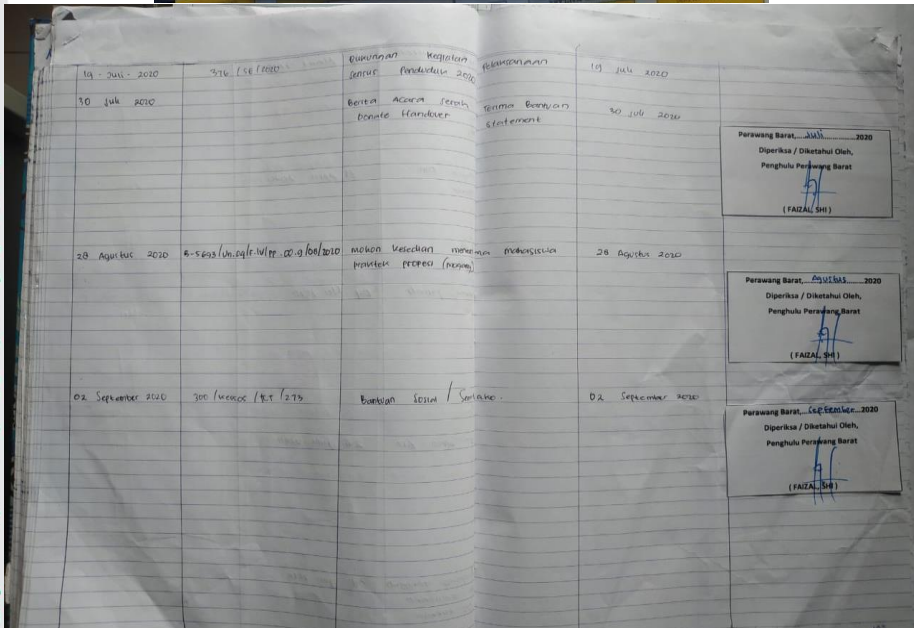 19 - Juli - 2020 376 /SE/2020 Dukungan Kegiatan Pelaksanaan 19 Juli 2020
Sensus Penduduk 2020
30 Juli 2020 Berita Acara Serah Terima Bantuan 30 Juli 2020
Donate Handover Statement
Perawang Barat, Juli 2020
Diperiksa / Diketahui Oleh,
Penghulu Perawang Barat
( FAIZAL, SHI )
28 Agustus 2020 B-5693/Un.04/F.IV/PP.00.9/08/2020 Mohon Kesedian menerima mahasiswa 28 Agustus 2020
Praktek propesi
Perawang Barat, Agustus 2020
Diperiksa / Diketahui Oleh,
Penghulu Perawang Barat
( FAIZAL, SHI )
02 September 2020 300 / / /275 Bantuan Sosial / Sembako. 02 September 2020
Perawang Barat, September 2020
Diperiksa / Diketahui Oleh,
Penghulu Perawang Barat
( FAIZAL, SHI )